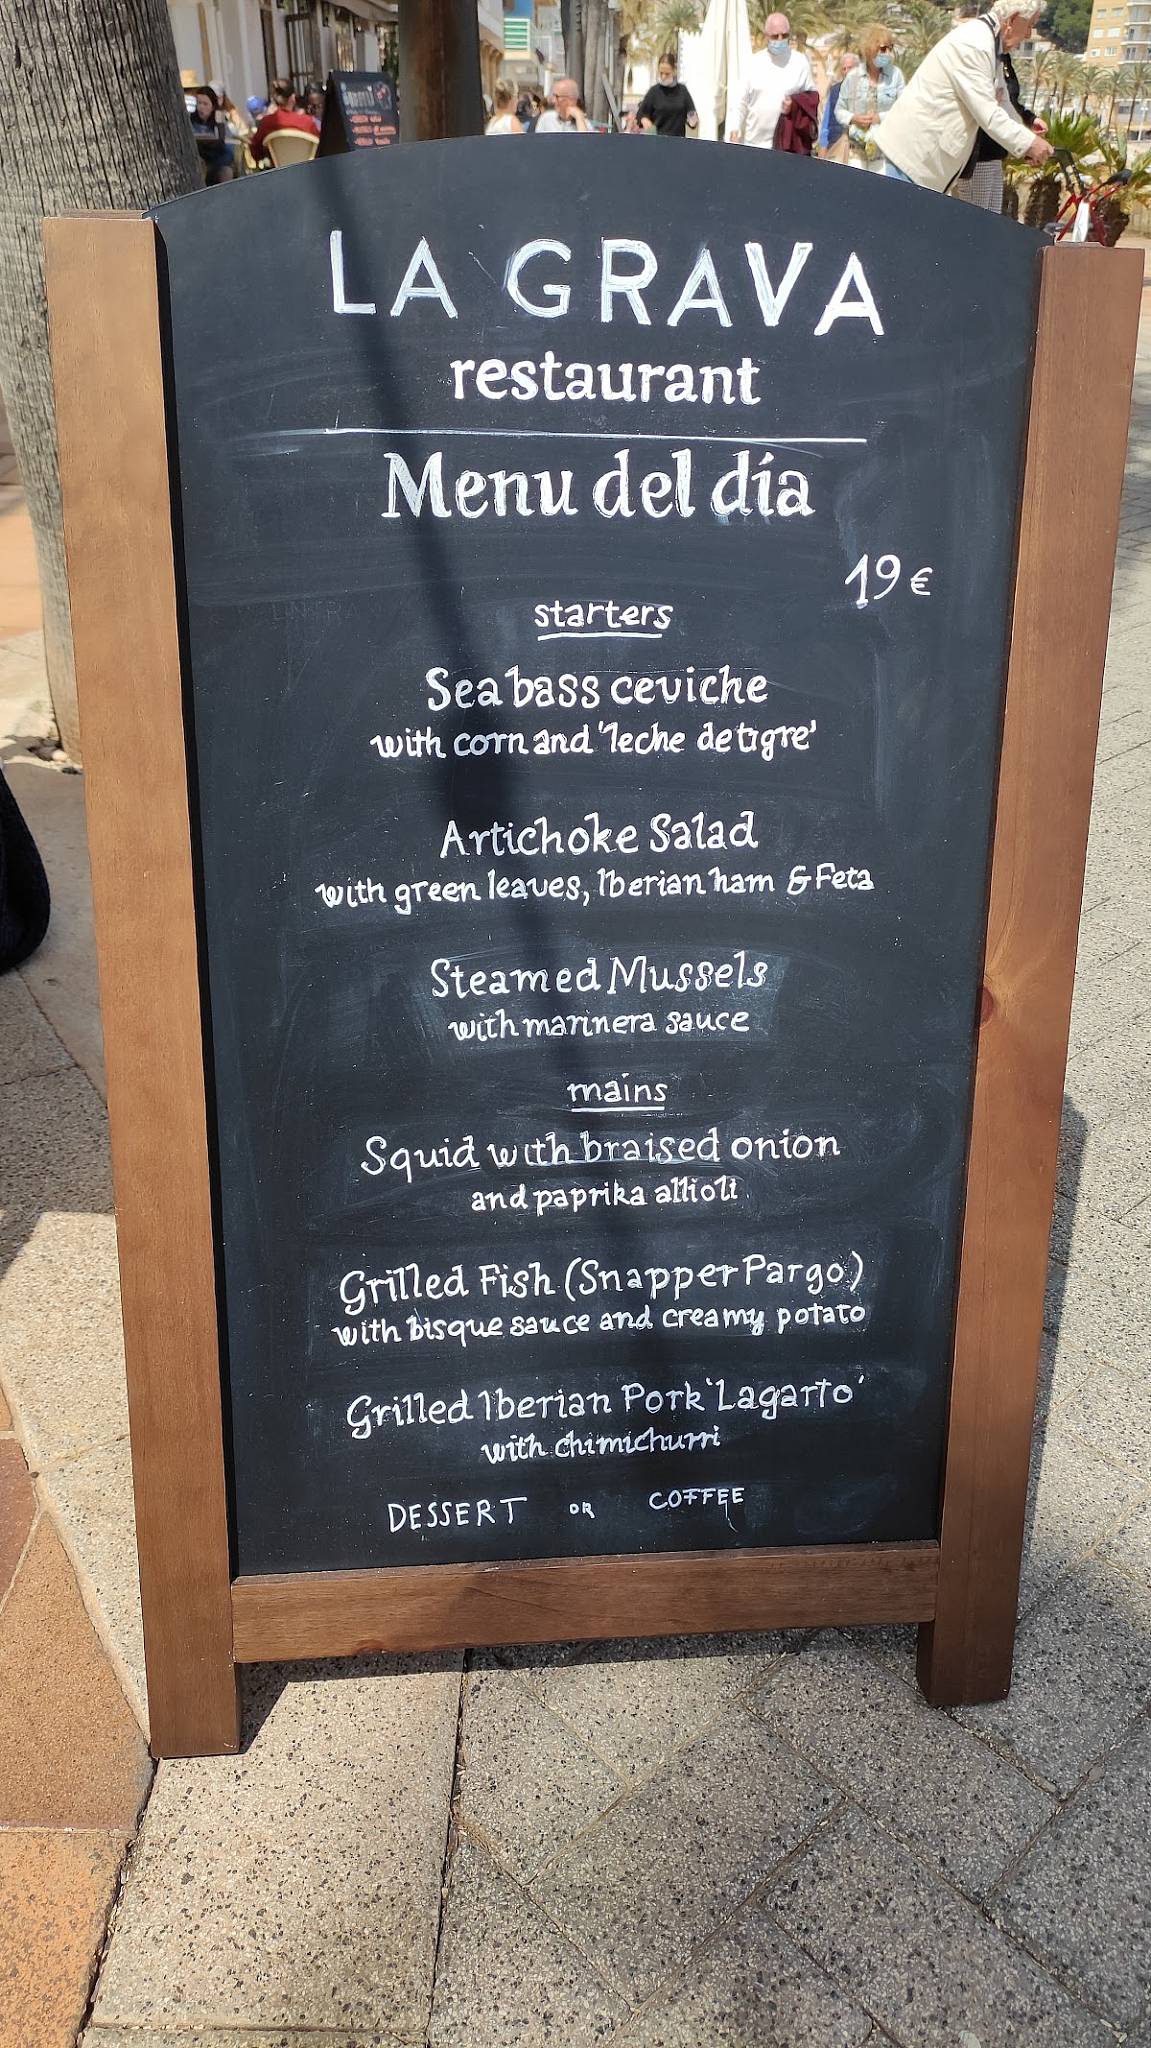 LA GRAVA
restaurant
Menu del día
19€
starters
Sea bass ceviche
with corn and 'leche de tigre'
Artichoke Salad
with green leaves, Iberian ham & Feta
Steamed Mussels
with marinera sauce
mains
Squid with braised onion
and paprika allioli
Grilled Fish (Snapper Pargo)
with bisque sauce and creamy potato
Grilled Iberian Pork 'Lagarto'
with chimichurri
DESSERT OR COFFEE